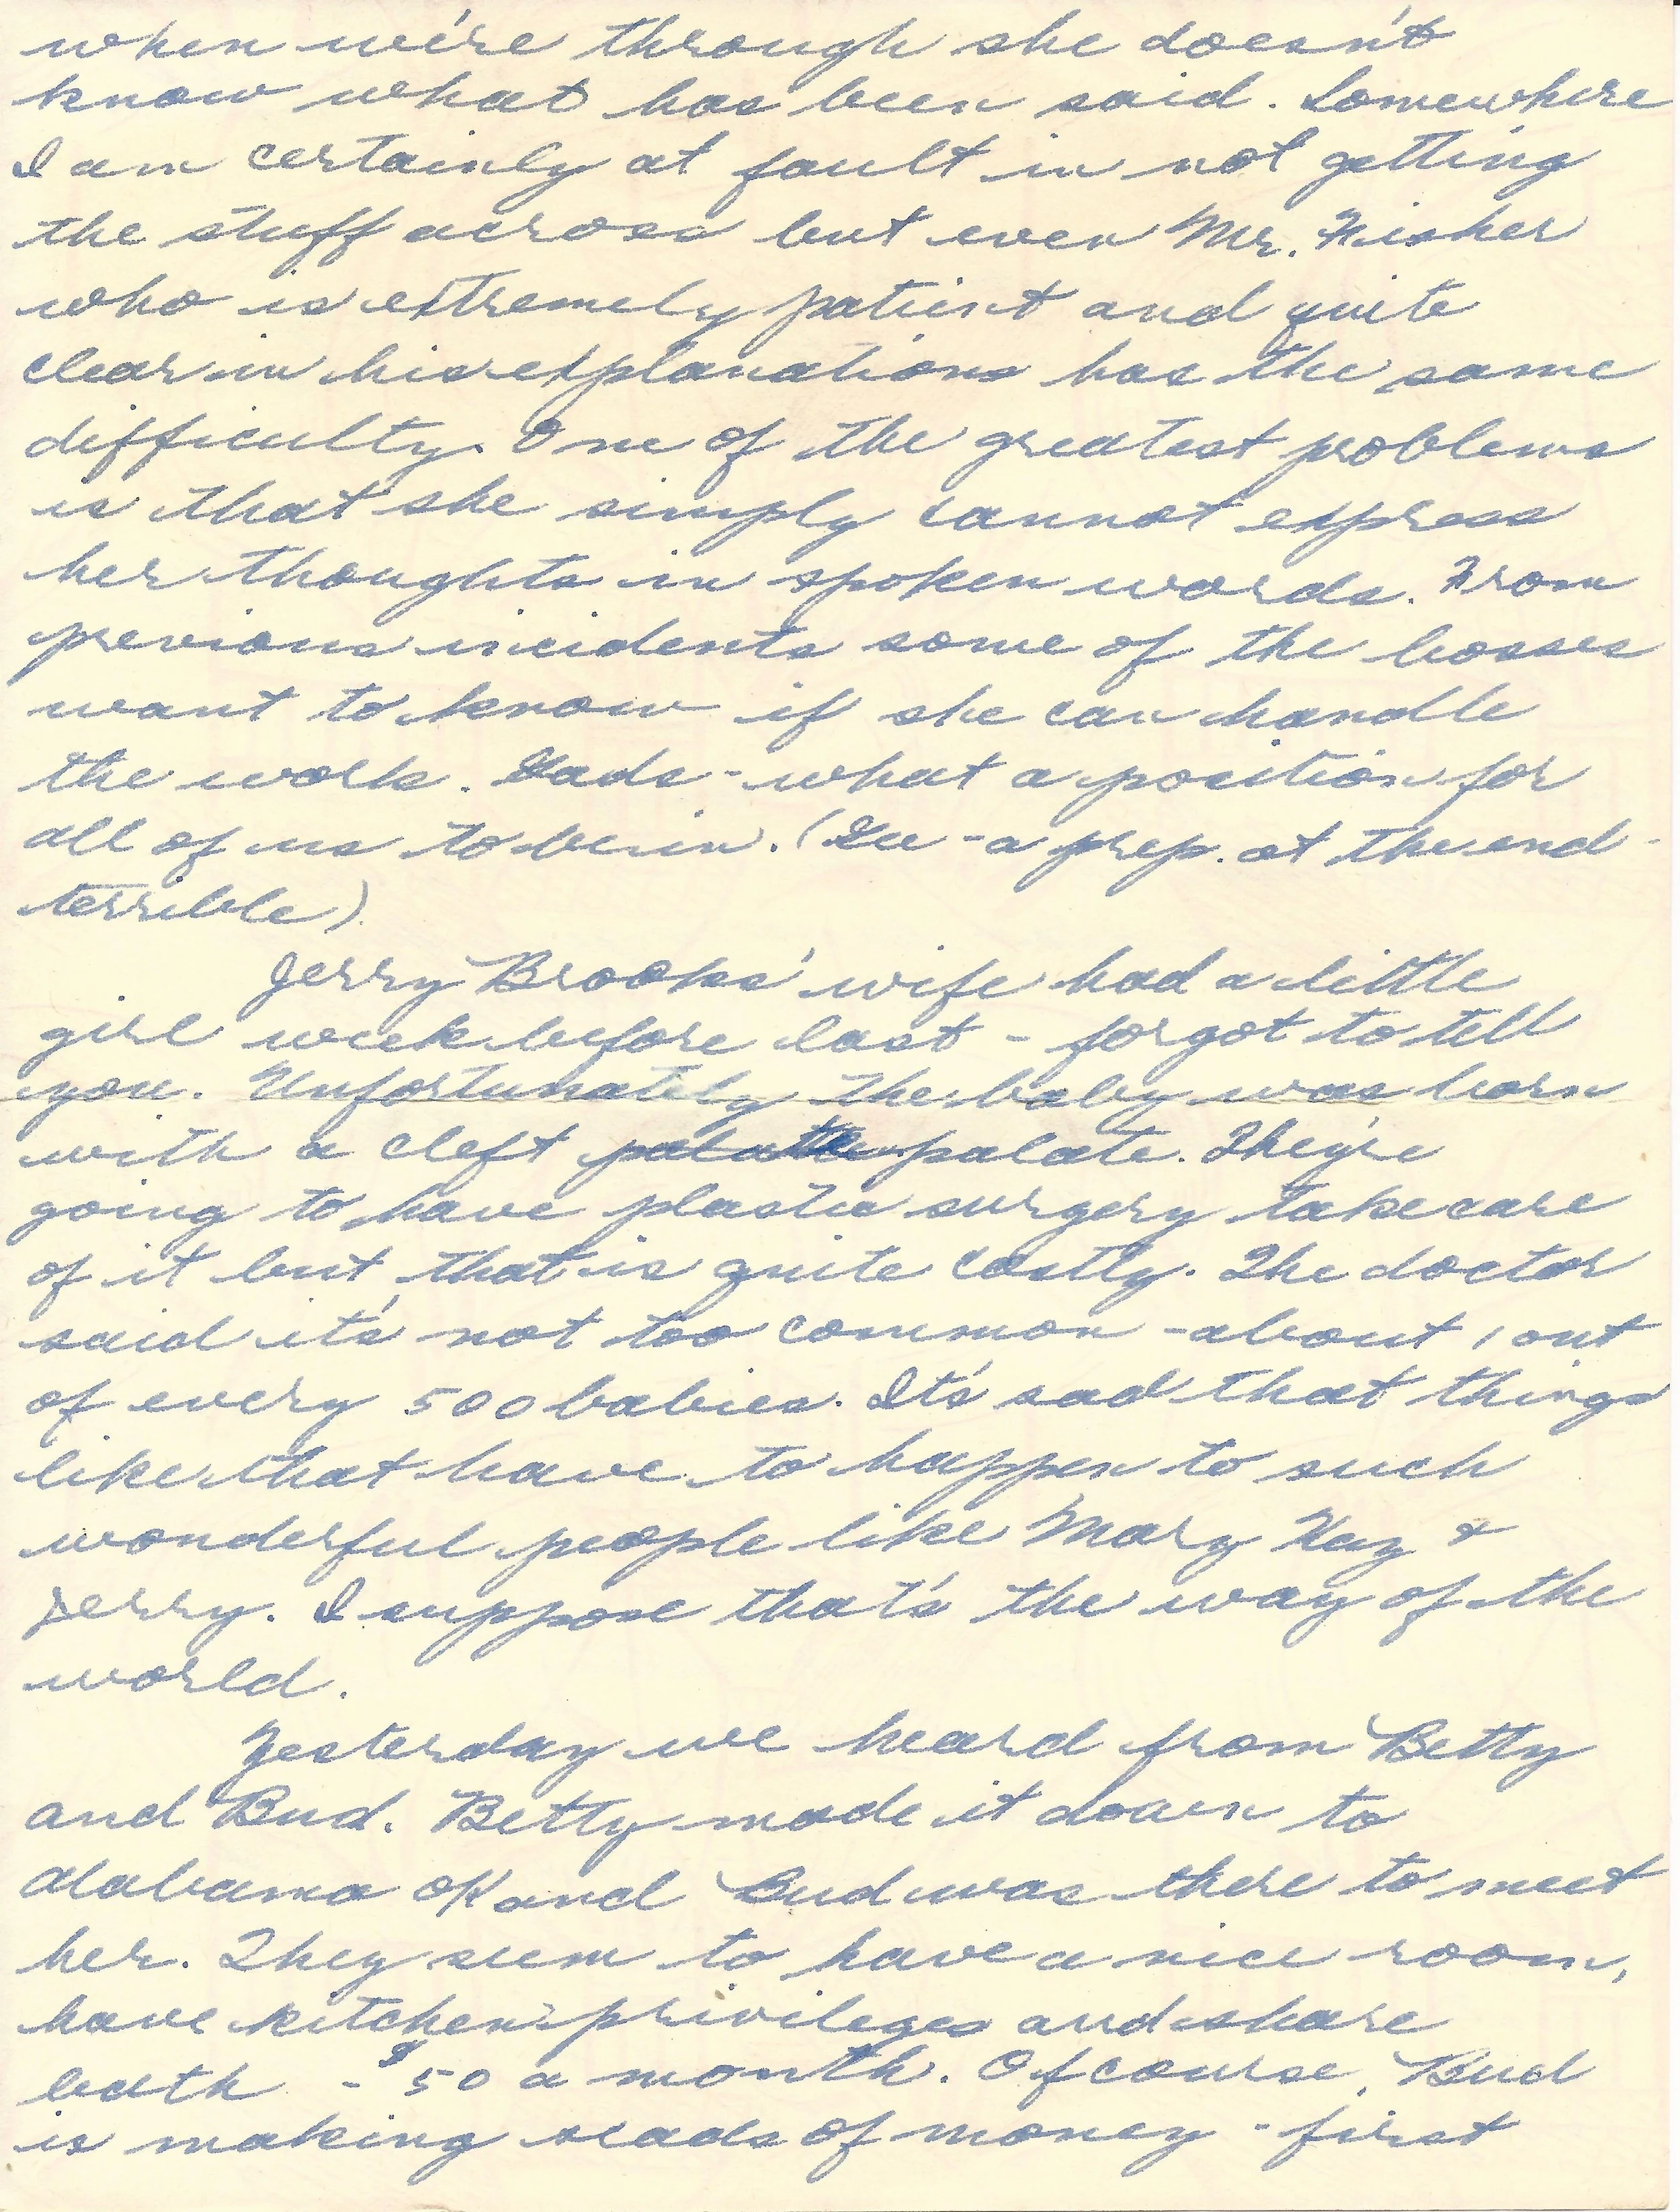 when we're through she doesn't
know what has been said. Somewhere
I am certainly at fault in not getting
the stuff across but even Mr. Fisher
who is extremely patient and quite
clear in his explanations has the same
difficulty. One of the greatest problems
is that she simply cannot express
her thoughts in spoken words. From
previous incidents some of the bosses
want to know if she can handle
the work. Gads - what a position for
all of us to be in. (Gee - a prep. at the end -
terrible).
Jerry Brooks' wife had a little
girl week before last - forgot to tell
you. Unfortunately the baby was born
with a cleft palate. They're
going to have plastic surgery take care
of it but that is quite costly. The doctor
said it's not too common - about 1 out
of every 500 babies. It's sad that things
like that have to happen to such
wonderful people like Mary Kay &
Jerry. I suppose that's the way of the
world.
Yesterday we heard from Betty
and Bud. Betty made it down to
Alabama OK and Bud was there to meet
her. They seem to have a nice room,
have kitchen privileges and share
bath - $50 a month. Of course, Bud
is making scads of money - first